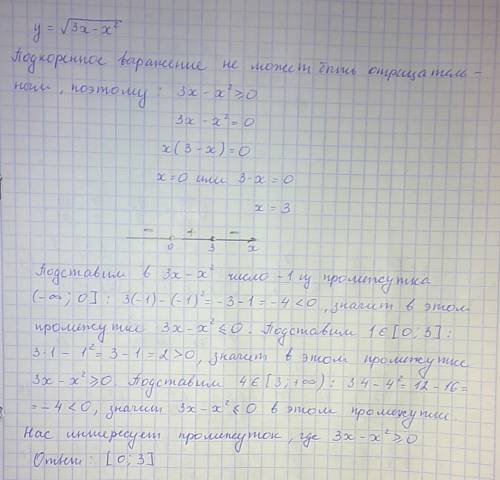 y = √(3x-x²)
Подкоренное выражение не может быть отрицатель-
ным, поэтому: 3x - x² ≥ 0
3x - x² = 0
x(3-x) = 0
x=0 или 3-x = 0
x = 3
- + -
0 3 x
Подставим в 3x-x² число -1 из промежутка
(-∞; 0]: 3(-1)-(-1)² = -3-1 = -4 < 0, значит в этом
промежутке 3x-x² ≤ 0. Подставим 1∈[0; 3]:
3·1 - 1² = 3-1 = 2 > 0, значит в этом промежутке
3x-x² ≥ 0. Подставим 4∈[3; +∞): 3·4-4²=12-16=
= -4 < 0, значит 3x-x² ≤ 0 в этом промежутке.
Нас интересует промежуток, где 3x-x² ≥ 0
Ответ: [0; 3]